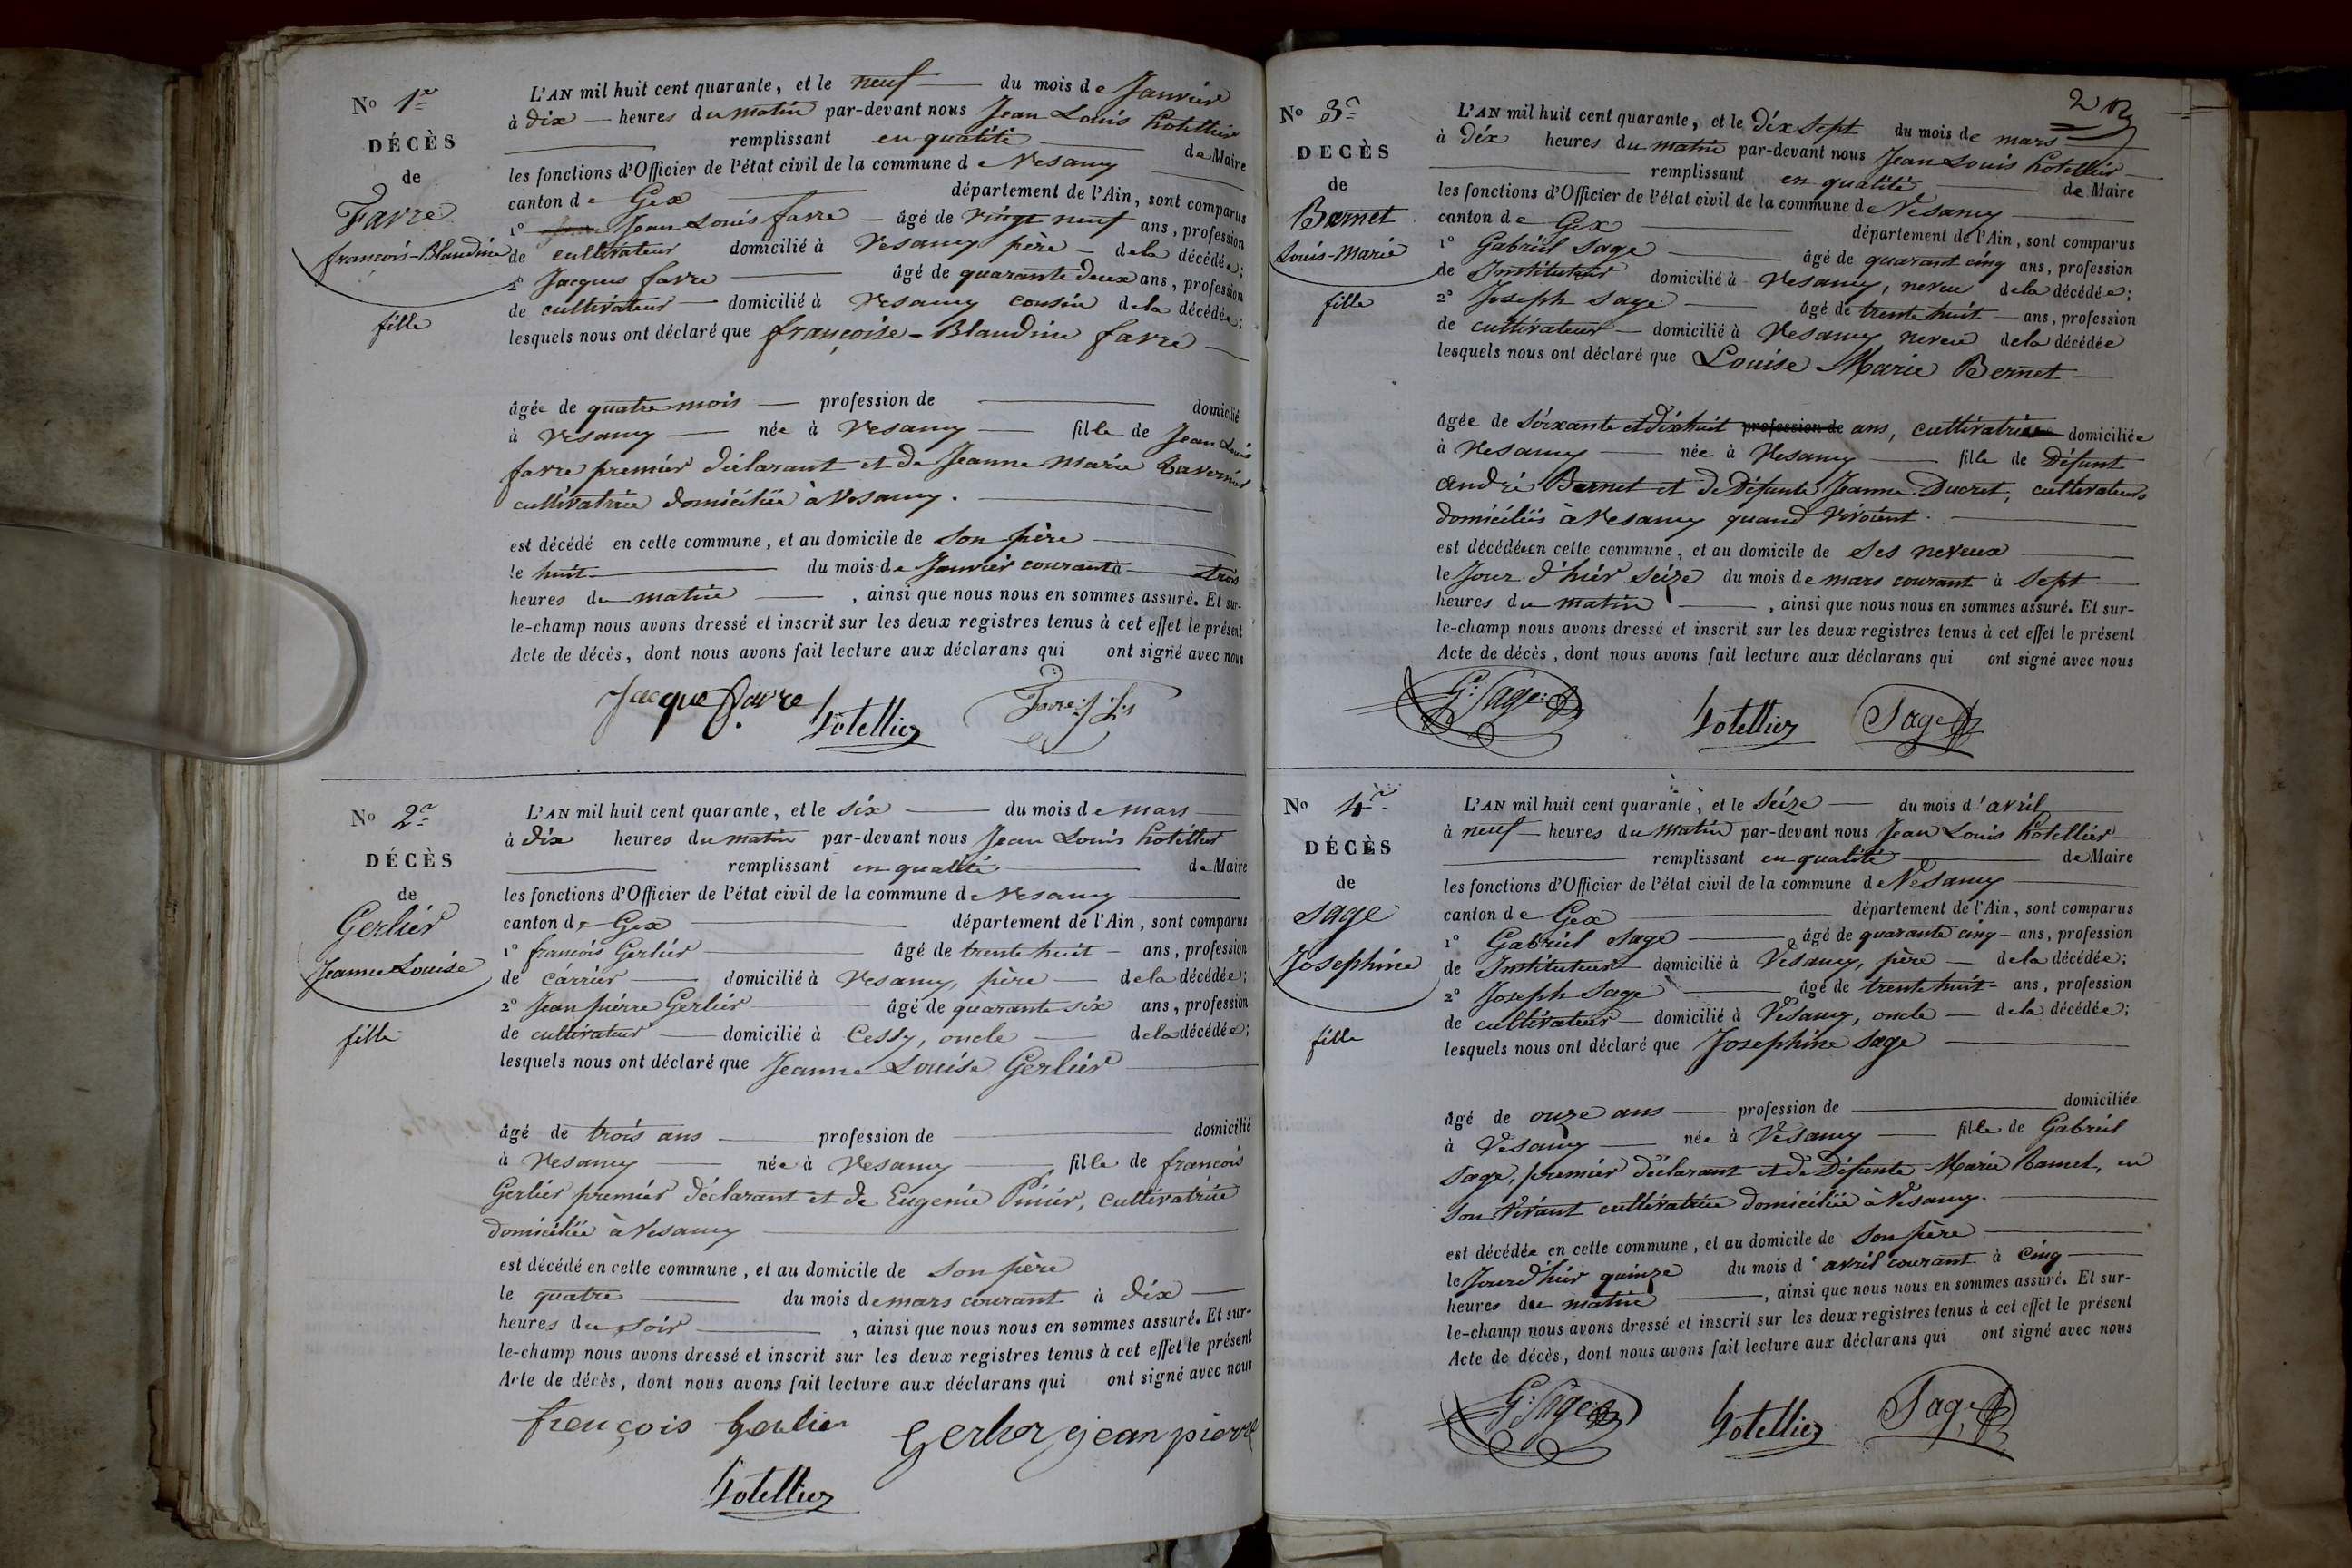 No 1er
DÉCÈS
de
Favre
francois-Blaudine
fille
L'AN mil huit cent quarante, et le neuf du mois de Janvier
à dix heures du matin par-devant nous Jean Louis hotellier
remplissant en qualité de Maire
les fonctions d'Officier de l'état civil de la commune de Vesancy
canton de Gex département de l'Ain, sont comparus
1° Jean Louis favre âgé de vingt neuf ans, profession
de cultivateur domicilié à Vesancy père de la décédée;
2° Jacques favre âgé de quarante deux ans, profession
de cultivateur domicilié à Vesancy cousin de la décédée;
lesquels nous ont déclaré que françoise-Blaudine favre
âgée de quatre mois profession de domicilié
à Vesancy née à Vesancy fille de Jean Louis
favre premier déclarant et de Jeanne Marie
cultivatrice domiciliée à Vesancy.
est décédé en cette commune, et au domicile de son père
le huit du mois de Janvier courant à trois
heures du matin, ainsi que nous nous en sommes assuré. Et sur-
le-champ nous avons dressé et inscrit sur les deux registres tenus à cet effet le présent
Acte de décès, dont nous avons fait lecture aux déclarans qui ont signé avec nous
Jacque favre hotellier Favre J. Ls
No 2e
DÉCÈS
de
Gerlier
Jeanne Louise
fille
L'AN mil huit cent quarante, et le six du mois de mars
à dix heures du matin par-devant nous Jean Louis hotellier
remplissant en qualité de Maire
les fonctions d'Officier de l'état civil de la commune de Vesancy
canton de Gex département de l'Ain, sont comparus
1° francois Gerlier âgé de trente huit ans, profession
de carrier domicilié à Vesancy, père de la décédée;
2° Jean pierre Gerlier âgé de quarante six ans, profession
de cultivateur domicilié à Cessy, oncle de la décédée;
lesquels nous ont déclaré que Jeanne Louise Gerlier
âgé de trois ans profession de domicilié
à Vesancy née à Vesancy fille de francois
Gerlier premier déclarant et de Eugenie, cultivatrice
domiciliée à Vesancy
est décédé en cette commune, et au domicile de son père
le quatre du mois de mars courant à dix
heures du soir, ainsi que nous nous en sommes assuré. Et sur-
le-champ nous avons dressé et inscrit sur les deux registres tenus à cet effet le présent
Acte de décès, dont nous avons fait lecture aux déclarans qui ont signé avec nous
françois Gerlier Gerlier jean pierre
hotellier
2
No 3e
DECÈS
de
Barnet
Louis-Marie
fille
L'AN mil huit cent quarante, et le dix sept du mois de mars
à dix heures du matin par-devant nous Jean Louis hotellier
remplissant en qualité de Maire
les fonctions d'Officier de l'état civil de la commune de Vesancy
canton de Gex département de l'Ain, sont comparus
1° Gabriel Sage âgé de quarant cinq ans, profession
de Instituteur domicilié à Vesancy, neveu de la décédée;
2° Joseph Sage âgé de trente huit ans, profession
de cultivateur domicilié à Vesancy neveu de la décédée
lesquels nous ont déclaré que Louise Marie Bernet
âgée de soixante et dixhuit profession de ans, cultivatrice domiciliée
à Vesancy née à Vesancy fille de Défunt
André Barnet et de Défunte Jeanne Ducret, cultivateurs
domiciliés à Vesancy quand vivoient.
est décédée en cette commune, et au domicile de ses neveux
le Jour d'hiér seize du mois de mars courant à sept
heures du matin, ainsi que nous nous en sommes assuré. Et sur-
le-champ nous avons dressé et inscrit sur les deux registres tenus à cet effet le présent
Acte de décès, dont nous avons fait lecture aux déclarans qui ont signé avec nous
G: Sage: hotellier Sage
No 4e
DÉCÈS
de
Sage
Josephine
fille
L'AN mil huit cent quarante, et le seize du mois d'avril
à neuf heures du matin par-devant nous Jean Louis hotellier
remplissant en qualité de Maire
les fonctions d'Officier de l'état civil de la commune de Vesancy
canton de Gex département de l'Ain, sont comparus
1° Gabriel Sage âgé de quarante cinq ans, profession
de Instituteur domicilié à Vesancy, père de la décédée;
2° Joseph Sage âgé de trente huit ans, profession
de cultivateur domicilié à Vesancy, oncle de la décédée;
lesquels nous ont déclaré que Josephine Sage
âgé de onze ans profession de domiciliée
à Vesancy née à Vesancy fille de Gabriel
Sage, premier déclarant et de Défunte Marie, en
son vivant cultivatrice domiciliée à Vesancy.
est décédée en cette commune, et au domicile de son père
le Jour d'hiér quinze du mois d'avril courant à cinq
heures du matin, ainsi que nous nous en sommes assuré. Et sur-
le-champ nous avons dressé et inscrit sur les deux registres tenus à cet effet le présent
Acte de décès, dont nous avons fait lecture aux déclarans qui ont signé avec nous
G: Sage hotellier Sage